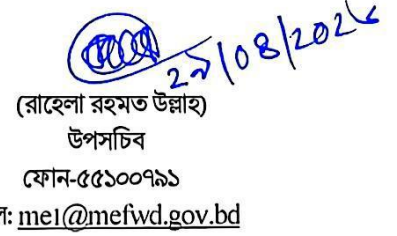 ২৯/০৪/২০২৬
(রাহেলা রহমত উল্লাহ)
উপসচিব
ফোন-৫৫১০০৭৯১
ল: me1@mefwd.gov.bd